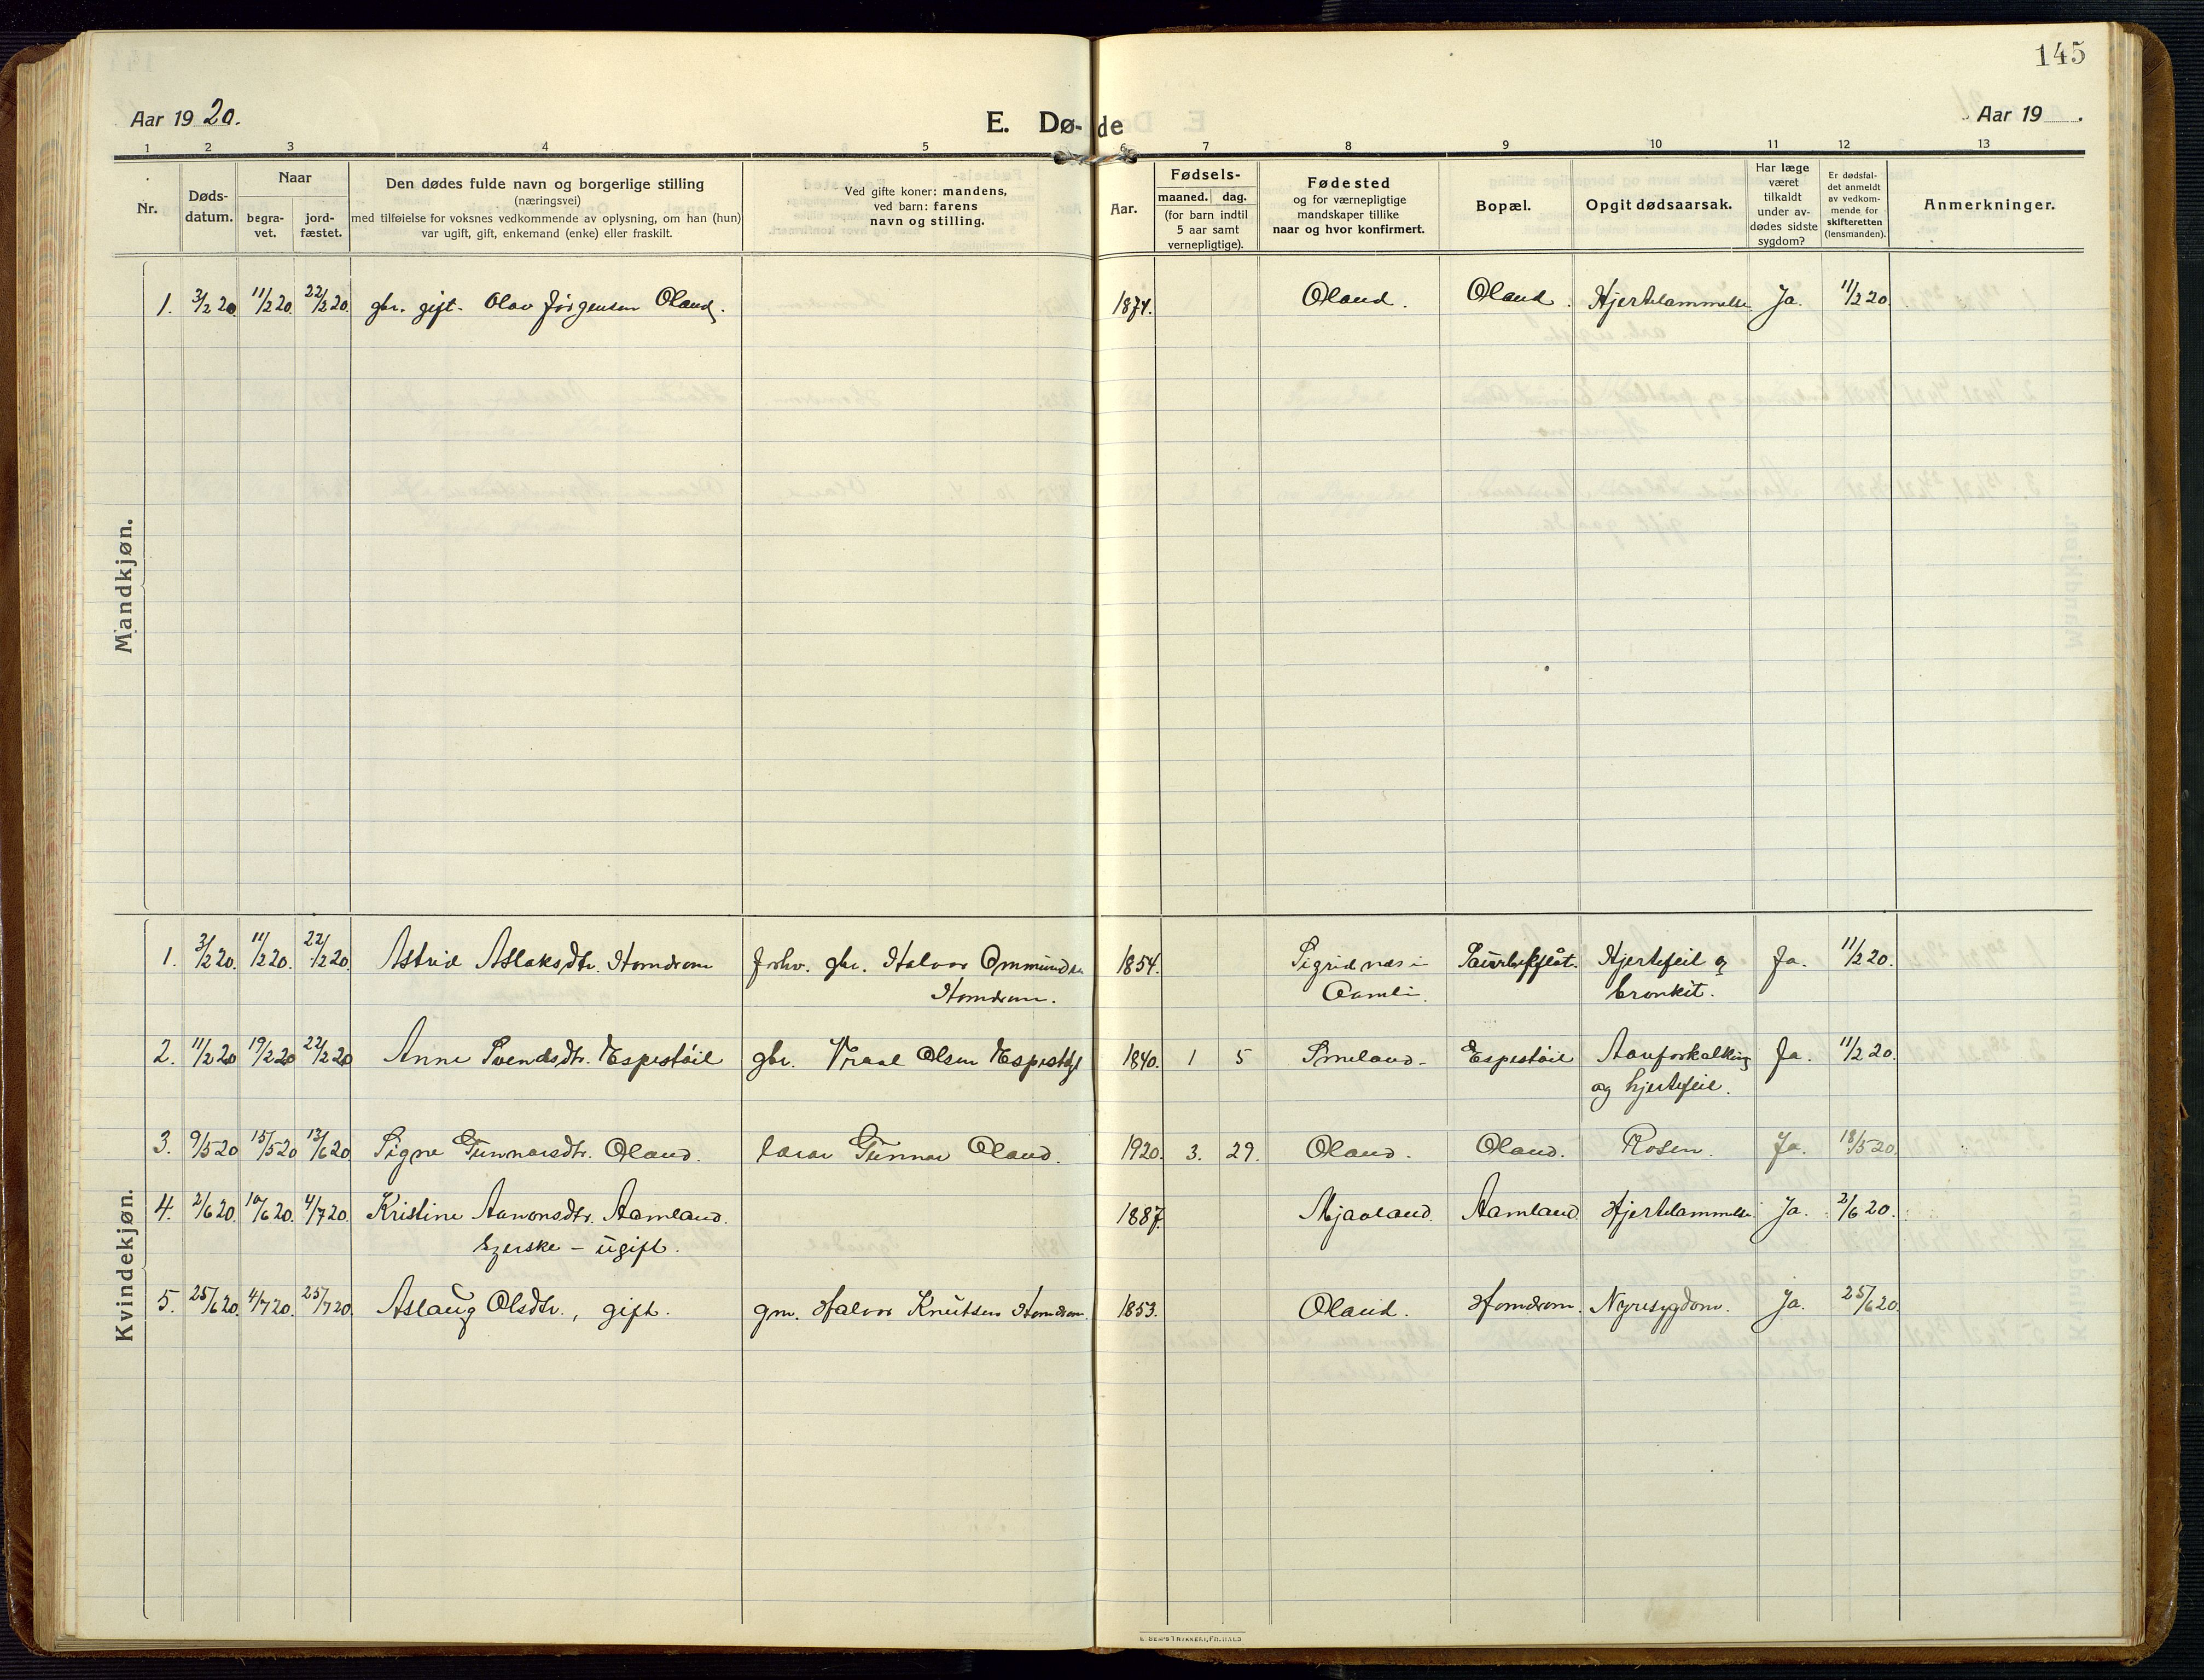 145
Aar 1920.
E. Dø-de
Aar 19 .
1 2 3 4 5 6 7 8 9 10 11 12 13
Nr.
Døds-
datum.
Naar
begra-
vet.
jord-
fæstet.
Den dødes fulde navn og borgerlige stilling
(næringsvei)
med tilføielse for voksnes vedkommende av oplysning, om han (hun)
var ugift, gift, enkemand (enke) eller fraskilt.
Ved gifte koner: mandens,
ved barn: farens
navn og stilling.
Aar.
Fødsels-
maaned. dag.
(for barn indtil
5 aar samt
vernepligtige).
Fødested
og for værnepligtige
mandskaper tillike
naar og hvor konfirmert.
Bopæl.
Opgit dødsaarsak.
Har læge
været
tilkaldt
under av-
dødes sidste
sygdom?
Er dødsfal-
det anmeldt
av vedkom-
mende for
skifteretten
(lensmanden).
Anmerkninger.
Mandkjøn.
1. 3/2 20. 11/2 20. 22/2 20. gbr. gift. Olav Jörgensen Oland. 1874. Oland. Oland. Hjertelammelse Ja. 11/2 20.
Kvindekjøn.
1. 3/2 20. 11/2 20. 22/2 20. Astrid Aslaksdtr. Homdrom forhv. gbr. Halvor Ommundsen 1854. Sigridnes i Hjertefeil og Ja. 11/2 20.
Homdrom. Aamli. bronkit.
2. 11/2 20 19/2 20 22/2 20 Anne Svendsdtr. Espestöil gbr. Vraal Olsen Espestöyl 1840. 1 5 Smeland. Espestöil Aareforkalkning Ja. 11/2 20.
og hjertefeil.
3. 9/5 20 15/5 20 13/6 20 Signe Gunnarsdtr. Oland. lærer Gunnar Oland. 1920. 3. 29. Oland. Oland. Rosen. Ja. 18/5 20.
4. 2/6 20. 10/6 20. 4/7 20. Kristine Aanonsdtr. Aamland. 1887. Mjaaland. Aamland. Hjertelammelse. Ja. 2/6 20.
syerske - ugift.
5. 25/6 20. 4/7 20. 25/7 20. Aslaug Olsdtr., gift. gm. Halvor Knutsen Homdrom. 1853. Oland. Homdrom. Nyresygdom. Ja. 25/6 20.